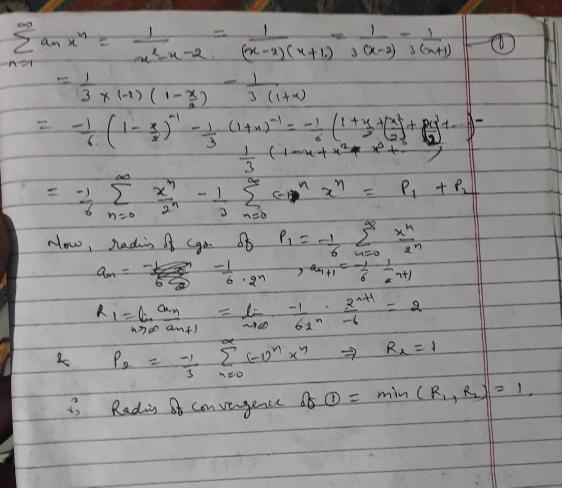 ∞ Σ n=1 aₙ xⁿ = 1/(x² - x - 2) = 1/((x-2)(x+1)) = 1/(3(x-2)) - 1/(3(x+1)) — ①
= 1/(3 × (-2)(1 - x/2)) - 1/(3(1+x))
= -1/6 (1 - x/2)⁻¹ - 1/3 (1+x)⁻¹ = -1/6 (1 + x/2 + (x/2)² + (x/2)³ + ...) -
1/3 (1 - x + x² - x³ + ... )
= -1/6 ∞ Σ n=0 xⁿ/2ⁿ - 1/3 ∞ Σ n=0 (-1)ⁿ xⁿ = P₁ + P₂
Now, radius of cgn of P₁ = -1/6 ∞ Σ n=0 xⁿ/2ⁿ
aₙ = -1/(6·2ⁿ) , aₙ₊₁ = -1/6 1/2ⁿ⁺¹
R₁ = lim n→∞ aₙ/aₙ₊₁ = lim n→∞ -1/(6 2ⁿ) · 2ⁿ⁺¹/-6 = 2
& P₂ = -1/3 ∞ Σ n=0 (-1)ⁿ xⁿ ⇒ R₂ = 1
∴ Radius of convergence of ① = min (R₁, R₂) = 1.